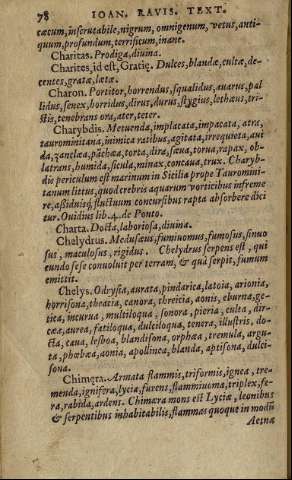 78 IOAN. RAVIS. TEXT.
cæcum, inscrutabile, nigrum, omnigenum, vetus, anti-
quum, profundum, terrificum, inane.
Charitas. Prodiga, diuina.
Charites, id est, Gratię. Dulces, blandæ, cultæ, de-
centes, gratæ, lætæ.
Charon. Portitor, horrendus, squalidus, auarus, pal
lidus, senex, horridus, dirus, durus, stygius, lethæus, tri-
stis, tenebrans ora, ater, teter.
Charybdis. Metuenda, implacata, impacata, atra,
taurominitana, inimica ratibus, agitata, irrequieta, aui
da, zanclæa, pachæa, torta, dira, sæua, torua, rapax, ob-
latrans, humida, sicula, minax, concaua, trux. Charyb-
dis periculum est marinum in Sicilia prope Tauromini-
tanum littus, quod crebris aquarum vorticibus infreme
re, assiduisq́ fluctuum concursibus rapta absorbere dici
tur. Ouidius lib. 4. de Ponto.
Charta. Docta, laboriosa, diuina.
Chelydrus. Medusæus, fumiuomus, fumosus, sinuo
sus, maculosus, rigidus. Chelydrus serpens est, qui
eundo sese conuoluit per terram, & quà serpit, fumum
emittit.
Chelys. Odrysia, aurata, pindarica, latoia, arionia,
horrisona, thracia, canora, threicia, aonis, eburna, ge-
tica, incurua, multiloqua, sonora, pieria, culta, dir-
cæa, aurea, fatiloqua, dulciloqua, tenera, illustris, do-
cta, caua, lesboa, blandisona, orphæa, tremula, argu-
ta, phœbæa, aonia, apollinea, blanda, aptisona, dulci-
sona.
Chimęra. Armata flammis, triformis, ignea, tre-
menda, ignifera, lycia, furens, flammiuoma, triplex, fe-
ra, rabida, ardens. Chimæra mons est Lyciæ, leonibus
& serpentibus inhabitabilis, flammas quoque in modũ
Aetnæ